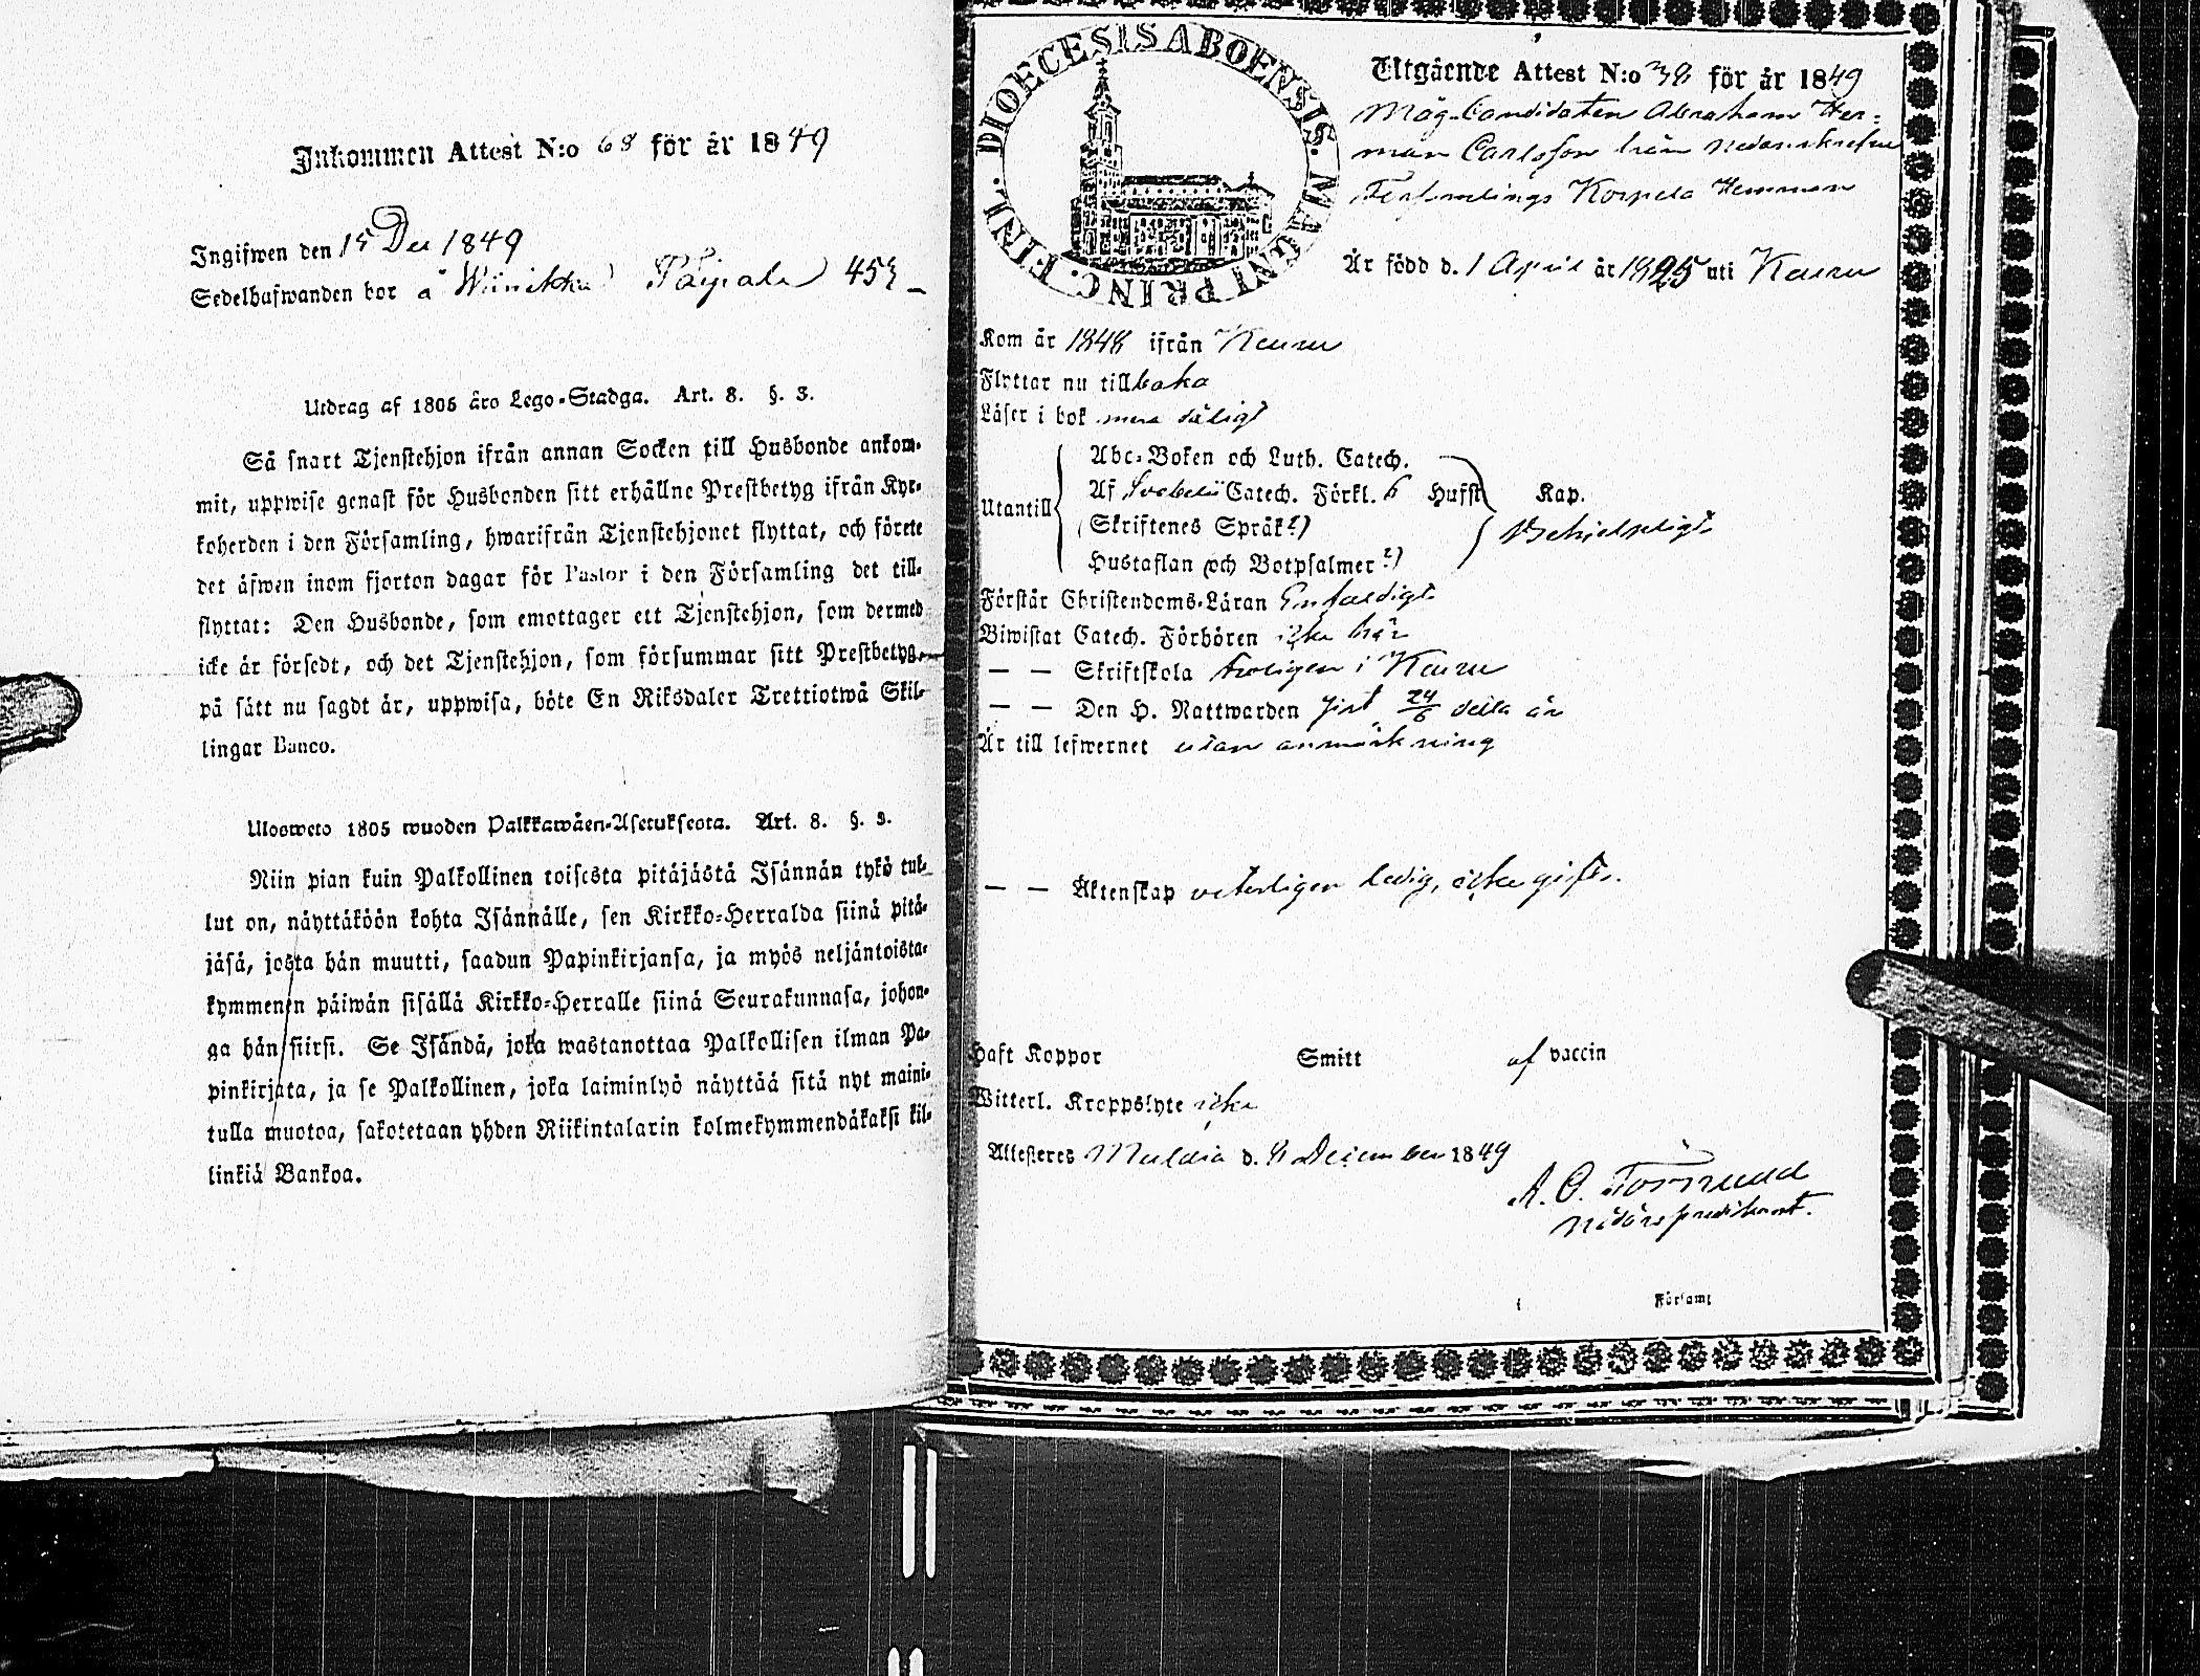 Inkommen Attest N:o 68 för år 1849
Ingifwen den 15 Dec 1849
Sedelhafwanden bor å Wiinikka Päijala 453
Utdrag af 1805 års Lego-Stadga. Art. 8. §. 3.
Så snart Tjenstehjon ifrån annan Socken till Husbonde ankom-
mit, uppwise genast för Husbonden sitt erhållne Prestbetyg ifrån Kyr-
koherden i den Församling, hwarifrån Tjenstehjonet flyttat, och förete
det äfwen inom fjorton dagar för Pastor i den Församling det till-
flyttat: Den Husbonde, som emottager ett Tjenstehjon, som dermed
icke är försedt, och det Tjenstehjon, som försummar sitt Prestbetyg,
på sätt nu sagdt är, uppwisa, böte En Riksdaler Trettiotwå Skil-
lingar Banco.
Ulosweto 1805 wuoden Palkkawäen-Asetuksesta. Art. 8. §. 3.
Niin pian kuin Palkollinen toisesta pitäjästä Isännän tykö tul-
lut on, näyttäköön kohta Isännälle, sen Kirkko-Herralda siinä pitä-
jäsä, josta hän muutti, saadun Papinkirjansa, ja myös neljäntoista-
kymmenen päiwän sisällä Kirkko-Herralle siinä Seurakunnasa, johon-
ga hän siirsi. Se Isändä, joka wastanottaa Palkollisen ilman Pa-
pinkirjata, ja se Palkollinen, joka laiminlyö näyttää sitä nyt maini-
tulla muotoa, sakotetaan yhden Riikintalarin kolmekymmendäkaksi kil-
linkiä Bankoa.
DIOECESIS ABOENSIS. MAGNI PRINC. FINL.
Utgående Attest N:o 38 för år 1849
Mäg. Candidaten Abraham Her-
man Carlsson från nedanskrefne
Församlings Korpela Hemman
Är född d. 1 April år 1825 uti Keuru
Kom år 1848 ifrån Keuru
Flyttar nu tillbaka
Läser i bok
Utantill
Abc-Boken och Luth. Catech.
Af Svebelii Catech. Förkl. 6 Hufst Kap.
Skriftenes Språk
Hustaflan och Botpsalmer
Förstår Christendoms-Läran Enfaldigt
Biwistat Catech. Förhören icke här
— — Skriftskola troligen i Keuru
— — Den H. Nattwarden sist 24/6 detta år
Är till lefwernet utan anmärkning
— — Äktenskap veterligen ledig, icke gift.
Haft Koppor Smitt af vaccin
Witterl. Kroppslyte icke
Attesteres Multia d. 8 December 1849
A. O. Törnudd
Nådårspredikant.
Församl